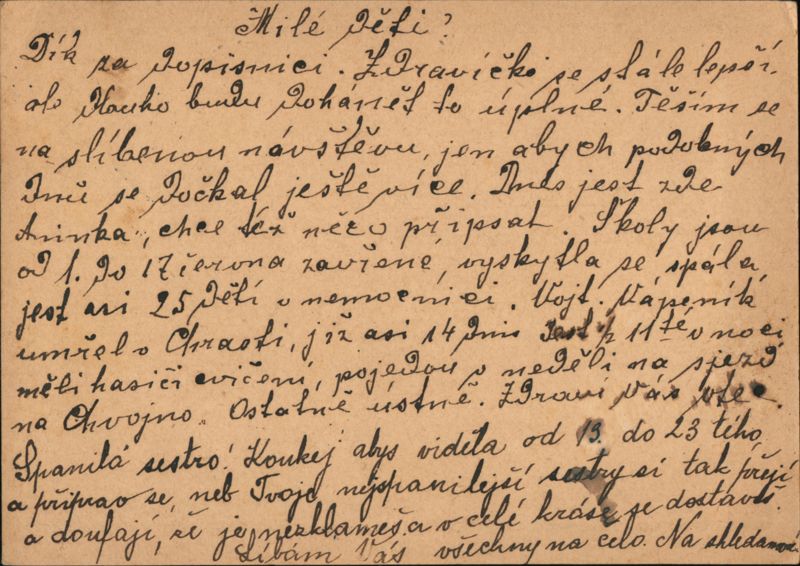 Milé děti!
Dík za dopisnici. Zdravíčko se stále lepší.
ale dlouho budu dohánět to úplné. Těším se
na slíbenou návštěvu, jen abych podobných
dnů se dočkal ještě více. Dnes jest zde
Aninka, chce též něco připsat. Školy jsou
od 1. do 17 června zavřené, vyskytla se spála,
jest asi 25 dětí v nemocnici. Vojt. Vápeník
umřel v Chrasti, již asi 14 dnů jest. 11té v noci
měli hasiči cvičení, pojedou v neděli na sjezd
na Chvojno. Ostatně ústně. Zdraví Vás otec.
Spanilá sestro! Koukej abys viděla od 19. do 23 tího,
a připrav se, neb Tvoje nejspanilejší sestry si tak přejí
a doufají, že je nezklameš a v celé kráse se dostavíš.
Líbám Vás všechny na čelo. Na shledanou